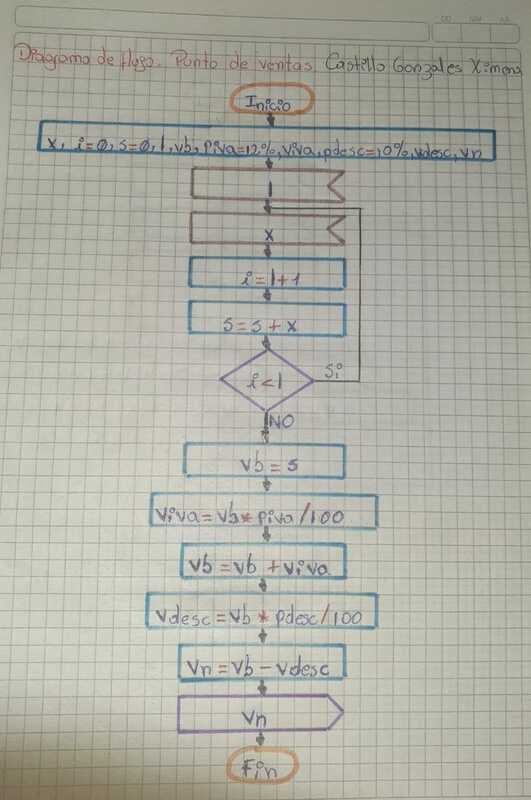 Diagrama de flujo. Punto de ventas. Castillo Gonzales Ximena
Inicio
x, i=0, s=0, 1, vb, piva=12%, viva, pdesc=10%, vdesc, vn
1
x
i=1+1
s=s+x
i<1
Si
NO
vb=s
viva=vb*piva/100
vb=vb+viva
vdesc=vb*pdesc/100
vn=vb-vdesc
vn
Fin